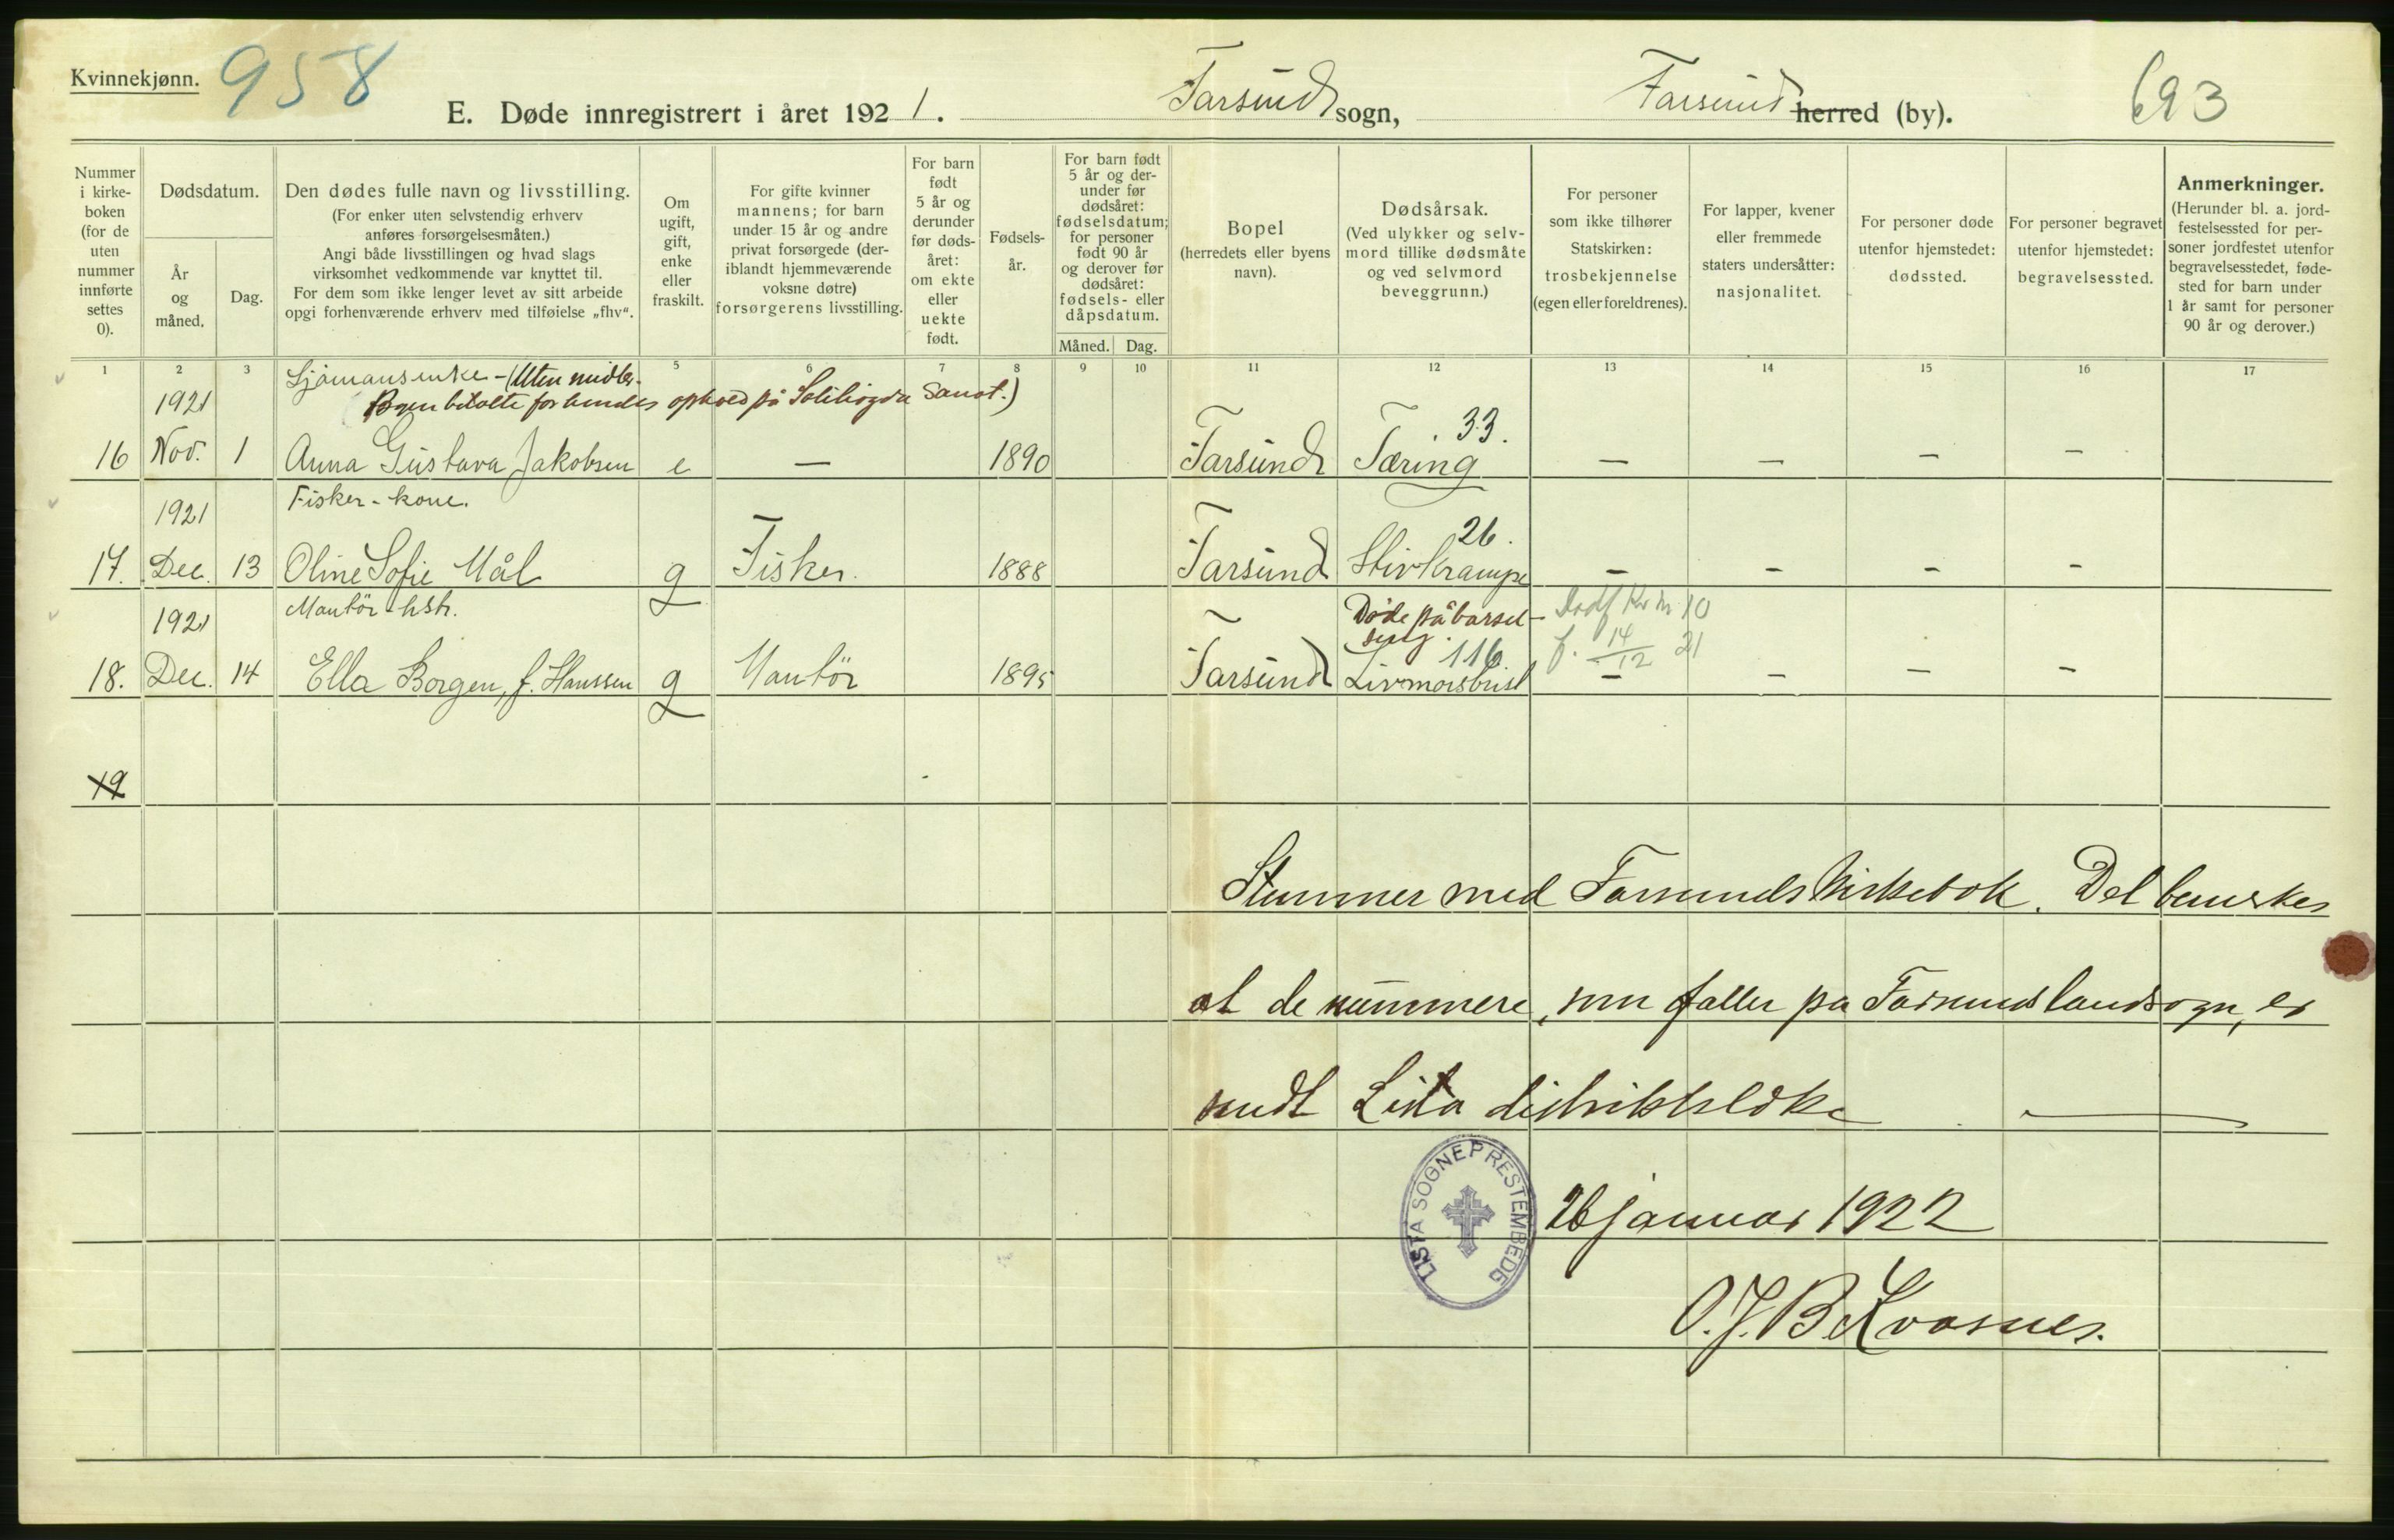 Kvinnekjønn. 958
E. Døde innregistrert i året 1921. Farsund sogn, Farsund herred (by). 693
Nummer i kirke-boken (for de uten nummer innførte settes 0).
Dødsdatum.
År og måned.
Dag.
Den dødes fulle navn og livsstilling.
(For enker uten selvstendig erhverv
anføres forsørgelsesmåten.)
Angi både livsstillingen og hvad slags
virksomhet vedkommende var knyttet til.
For dem som ikke lenger levet av sitt arbeide
opgi forhenværende erhverv med tilføielse „fhv“.
Om ugift, gift, enke eller fraskilt.
For gifte kvinner
mannens; for barn
under 15 år og andre
privat forsørgede (der-
iblandt hjemmeværende
voksne døtre)
forsørgerens livsstilling.
For barn
født
5 år og
derunder
før døds-
året:
om ekte
eller
uekte
født.
Fødsels-
år.
For barn født
5 år og der-
under før
dødsåret:
fødselsdatum;
for personer
født 90 år
og derover før
dødsåret:
fødsels- eller
dåpsdatum.
Måned. Dag.
Bopel
(herredets eller byens
navn).
Dødsårsak.
(Ved ulykker og selv-
mord tillike dødsmåte
og ved selvmord
beveggrunn.)
For personer
som ikke tilhører
Statskirken:
trosbekjennelse
(egen eller foreldrenes).
For lapper, kvener
eller fremmede
staters undersåtter:
nasjonalitet.
For personer døde
utenfor hjemstedet:
dødssted.
For personer begravet
utenfor hjemstedet:
begravelsessted.
Anmerkninger.
(Herunder bl. a. jord-
festelsessted for per-
soner jordfestet utenfor
begravelsesstedet, føde-
sted for barn under
1 år samt for personer
90 år og derover.)
1 2 3 5 6 7 8 9 10 11 12 13 14 15 16 17
Sjömansenke - (Uten midler.
Byen betalte for hendes ophold på Solihögda Sanat.)
1921 33.
16 Nov. 1 Anna Gustava Jakobsen e — 1890 Farsund Tæring — — — —
Fisker-kone.
1921 26.
17. Dec. 13 Oline Sofie Mål g Fisker. 1888 Farsund Stivkrampe — — — —
Montör-hstr. Døde på barsel-
1921 seng. 116.
Dødf Kv nr 10
f. 14/12 21
18. Dec. 14 Ella Borgen, f. Hanssen g Montör 1895 Farsund Livmorsbrist — — — —
19
Stemmer med Farsunds kirkebok. Det bemerkes
at de nummere, som faller på Farsunds landsogn, er
sendt Lista distriktslæke
LISTA SOGNEPRESTEMBEDE
26 januar 1922
O.J.B. Kvasnes.